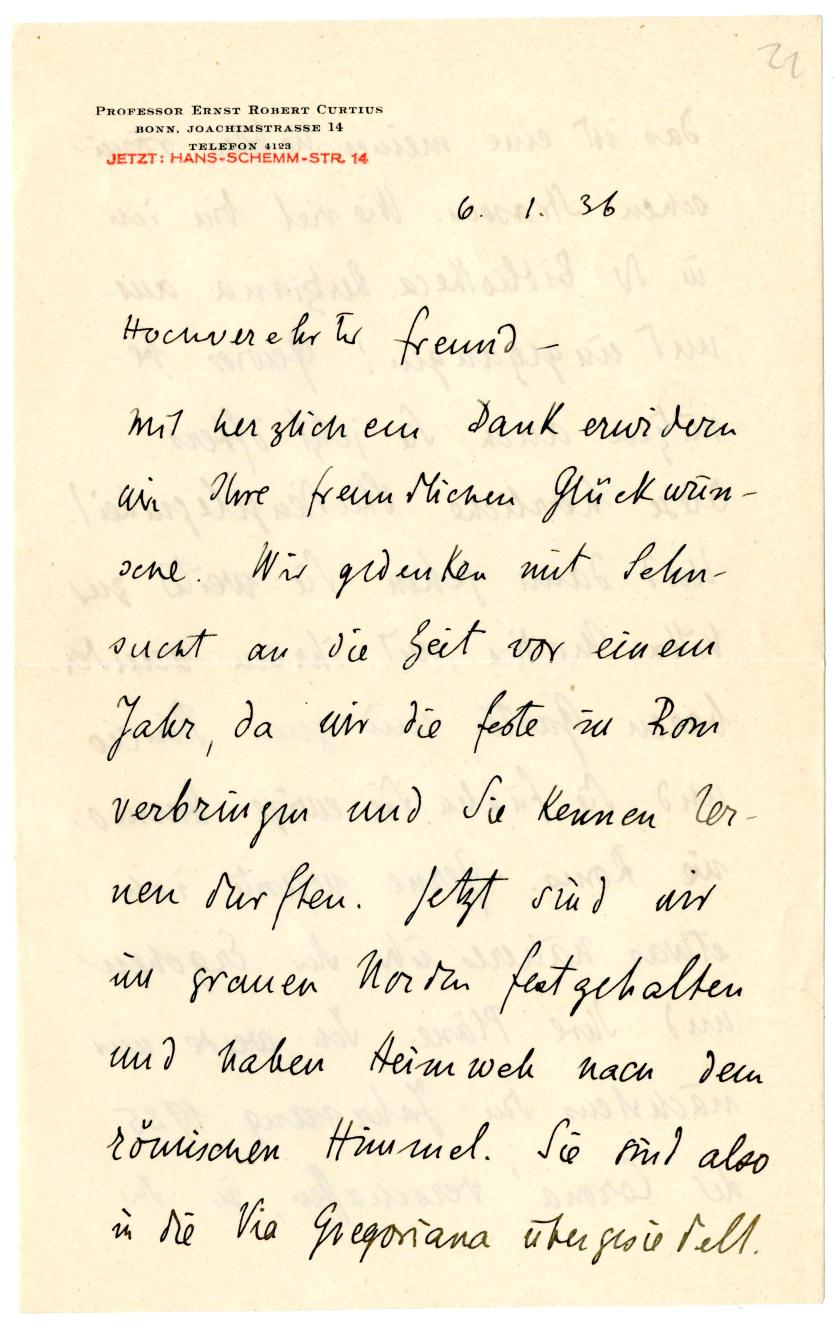 21
PROFESSOR ERNST ROBERT CURTIUS
BONN, JOACHIMSTRASSE 14
TELEFON 4123
JETZT: HANS-SCHEMM-STR. 14
6. 1. 36
Hochverehrter Freund –
Mit herzlichem Dank erwidern
wir Ihre freundlichen Glückwün-
sche. Wir gedenken mit Sehn-
sucht an die Zeit vor einem
Jahr, da wir die Feste in Rom
verbringen und Sie kennen ler-
nen durften. Jetzt sind wir
im grauen Norden festgehalten
und haben Heimweh nach dem
römischen Himmel. Sie sind also
in die Via Gregoriana übergesiedelt.